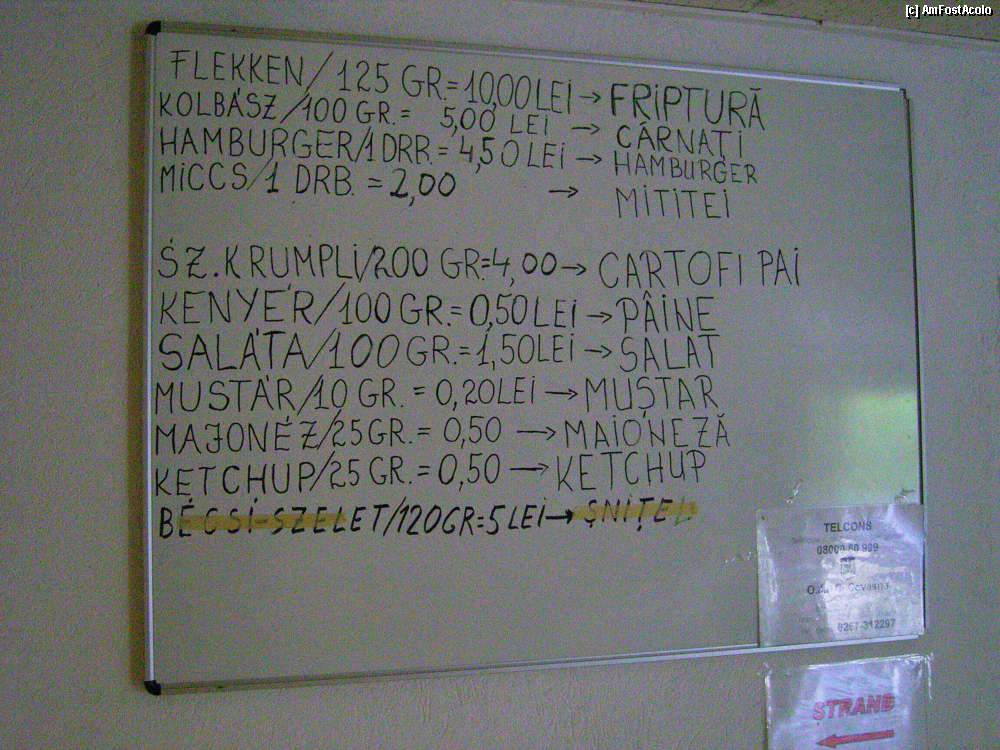 [c] AmFostAcolo
FLEKKEN/125 GR.=10,00LEI→FRIPTURĂ
KOLBÁSZ/100 GR.= 5,00 LEI → CÂRNAȚI
HAMBURGER/1DRB.=4,50LEI→HAMBURGER
MICCS/1 DRB.=2,00 → MITITEI
SZ.KRUMPLI/200 GR.=4,00→CARTOFI PAI
KENYÉR/100 GR.=0,50LEI→PÂINE
SALÁTA/100GR.=1,50LEI→SALAT
MUSTÁR/10 GR.=0,20LEI→MUȘTAR
MAJONÉZ/25GR.=0,50→MAIONEZĂ
KETCHUP/25 GR.=0,50→KETCHUP
BÉCSI-SZELET/120GR=5LEI→ȘNIȚEL
TELCONS
0267-312297
ȘTRAND